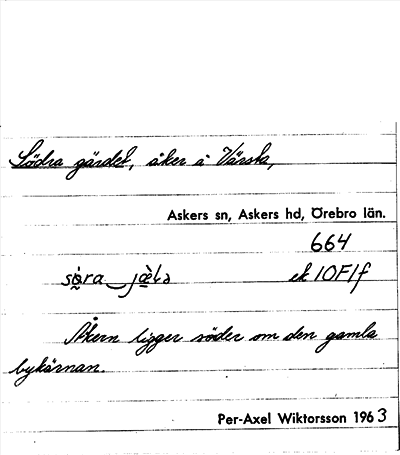 Södra gärdet, åker å Värsta,
Askers sn, Askers hd, Örebro län.
664
ek 10F1f
Åkern ligger söder om den gamla
bykärnan.
Per-Axel Wiktorsson 1963